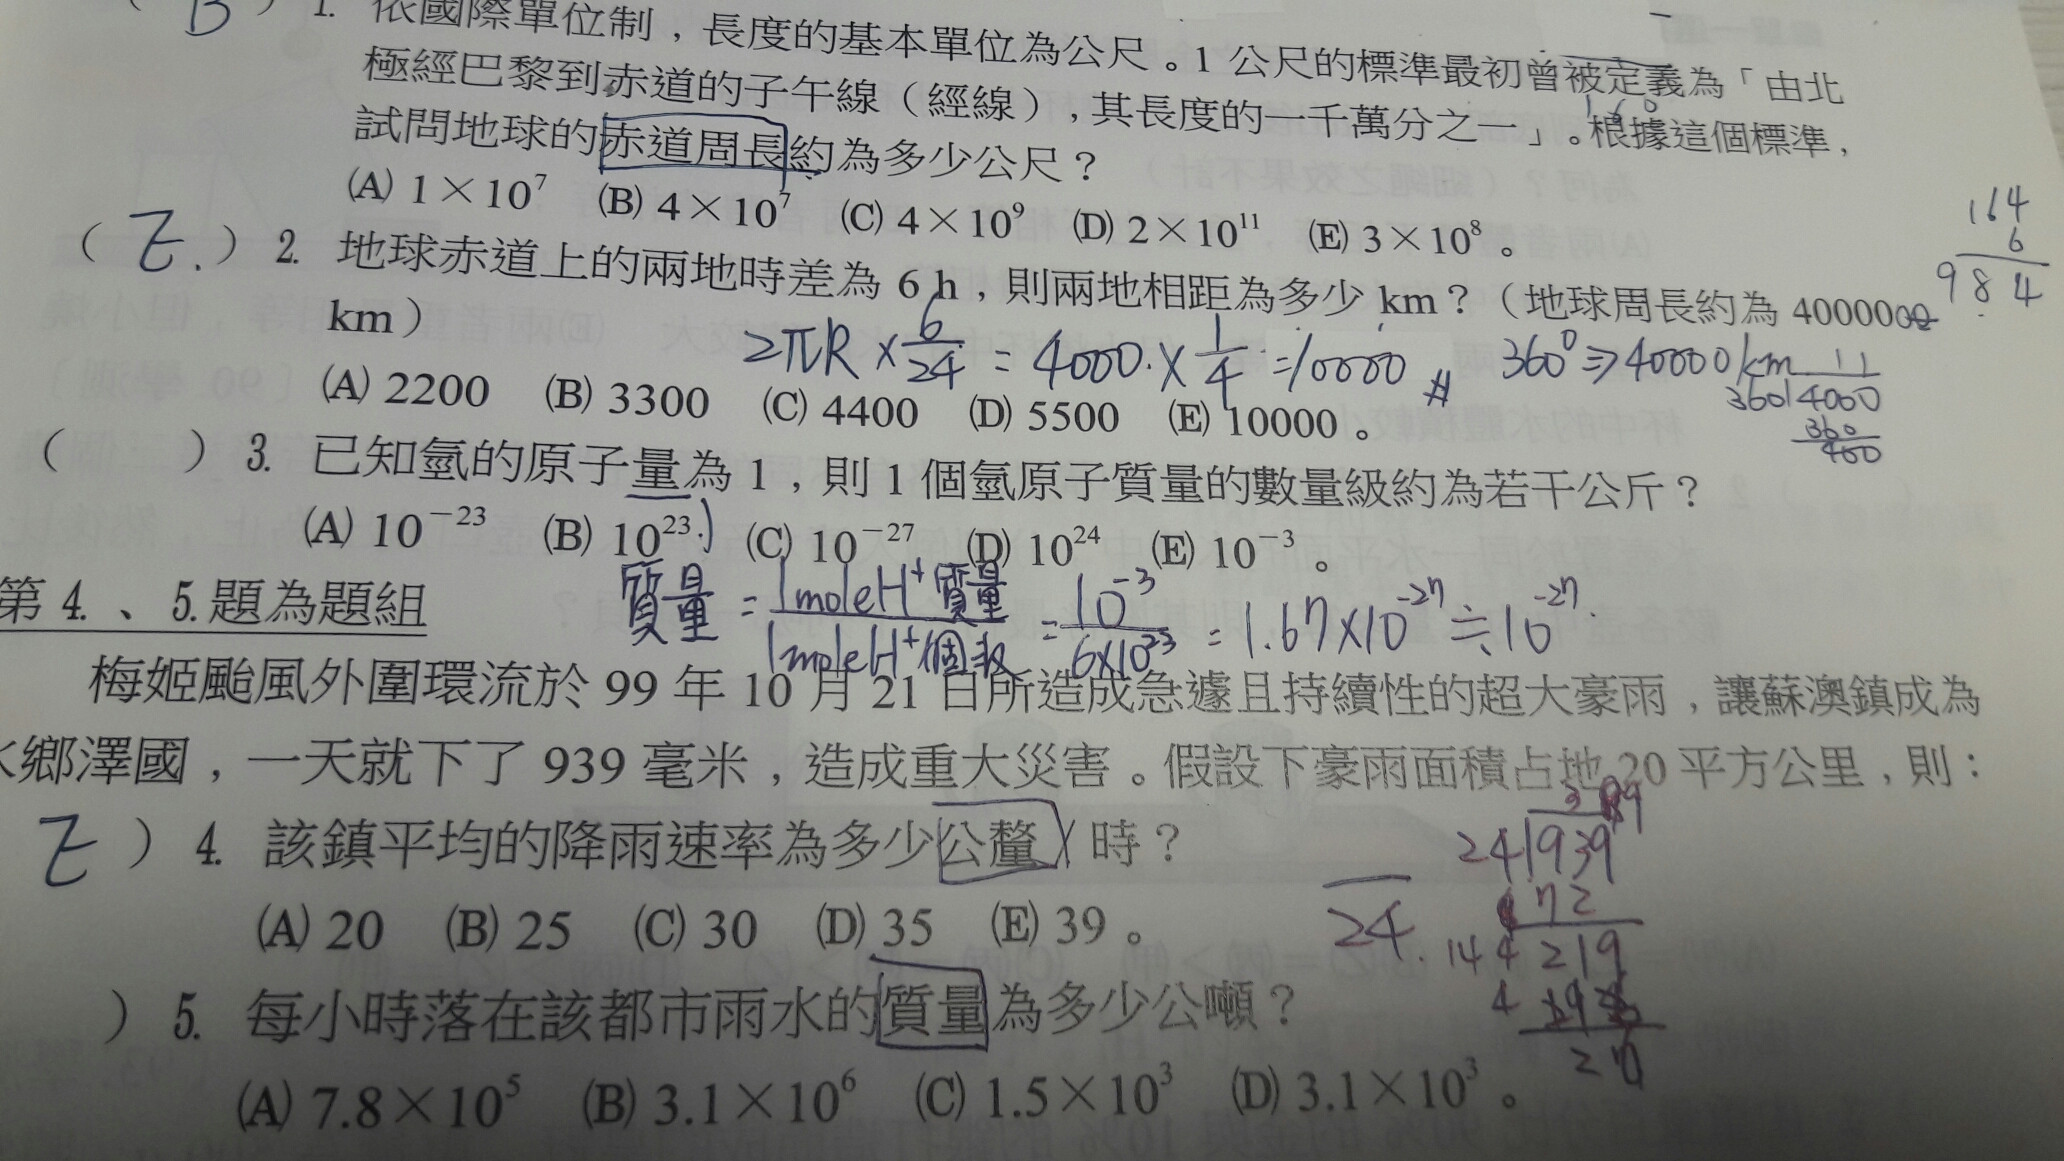 ( B ) 1. 依國際單位制，長度的基本單位為公尺。1 公尺的標準最初曾被定義為「由北
極經巴黎到赤道的子午線（經線），其長度的一千萬分之一」。根據這個標準，
試問地球的赤道周長約為多少公尺？
(A) 1×10⁷ (B) 4×10⁷ (C) 4×10⁹ (D) 2×10¹¹ (E) 3×10⁸。
164
6
984
( E. ) 2. 地球赤道上的兩地時差為 6 h，則兩地相距為多少 km？（地球周長約為 4000000
km）
2πR × 6/24 = 4000. × 1/4 = 10000 #
360° ⇒ 40000 km
11
360 4000
360
400
(A) 2200 (B) 3300 (C) 4400 (D) 5500 (E) 10000。
( ) 3. 已知氫的原子量為 1，則 1 個氫原子質量的數量級約為若干公斤？
(A) 10⁻²³ (B) 10²³ (C) 10⁻²⁷ (D) 10²⁴ (E) 10⁻³。
質量 = 1moleH⁺質量/1moleH⁺個数 = 10⁻³/6×10²³ = 1.67×10⁻²⁷ ≒ 10⁻²⁷
第 4. 、5.題為題組
梅姬颱風外圍環流於 99 年 10 月 21 日所造成急遽且持續性的超大豪雨，讓蘇澳鎮成為
水鄉澤國，一天就下了 939 毫米，造成重大災害。假設下豪雨面積占地 20 平方公里，則：
E ) 4. 該鎮平均的降雨速率為多少公釐／時？
24 939
72
24. 144 219
(A) 20 (B) 25 (C) 30 (D) 35 (E) 39。
) 5. 每小時落在該都市雨水的質量為多少公噸？
(A) 7.8×10⁵ (B) 3.1×10⁶ (C) 1.5×10³ (D) 3.1×10³。